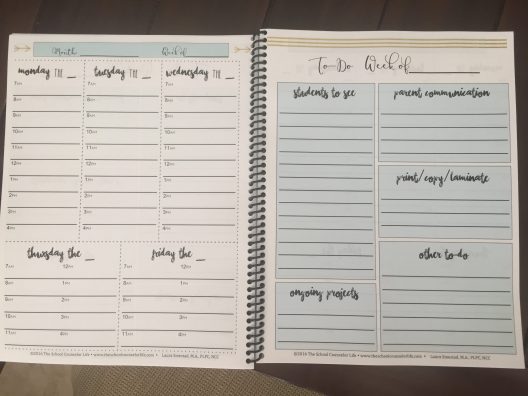 Month ______ Week of ______
monday THE __ tuesday THE __ wednesday THE __
7AM 7AM 7AM
8AM 8AM 8AM
9AM 9AM 9AM
10AM 10AM 10AM
11AM 11AM 11AM
12PM 12PM 12PM
1PM 1PM 1PM
2PM 2PM 2PM
3PM 3PM 3PM
4PM 4PM 4PM
thursday the __ friday the __
7AM 12PM 7AM 12PM
8AM 1PM 8AM 1PM
9AM 2PM 9AM 2PM
10AM 3PM 10AM 3PM
11AM 4PM 11AM 4PM
©2016 The School Counselor Life • www.theschoolcounselorlife.com • Laura
To-Do Week of ______
students to see
parent communication
print/copy/laminate
other to-do
ongoing projects
©2016 The School Counselor Life • www.theschoolcounselorlife.com • Laura M.A., PLPC, NCC